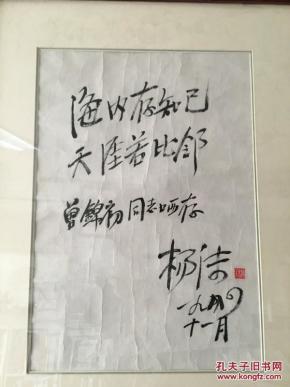 海内存知己
天涯若比邻
曾锦初同志哂存
杨洁
一九九〇
十一月
孔夫子旧书网